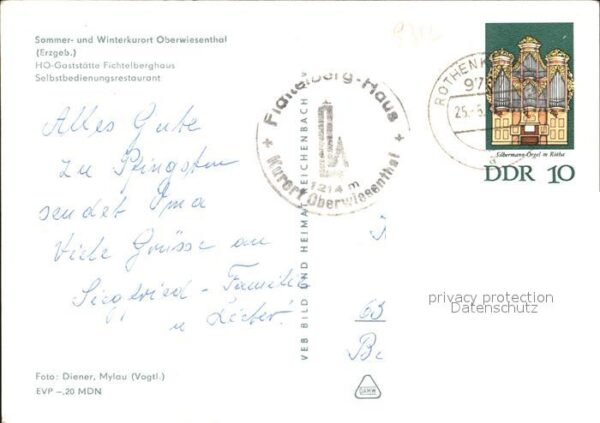 Sommer- und Winterkurort Oberwiesenthal
(Erzgeb.)
HO-Gaststätte Fichtelberghaus
Selbstbedienungsrestaurant
Alles Gute
zu Pfingsten
sendet Oma
Viele Grüsse an
Siegfried - Familie
u
Foto: Diener, Mylau (Vogtl.)
EVP -,20 MDN
VEB BILD UND HEIMAT REICHENBACH
Fichtelberg-Haus
1214 m
Kurort Oberwiesenthal
25.-5.
Silbermann-Orgel in Rötha
DDR 10
63
privacy protection
Datenschutz
DAMW